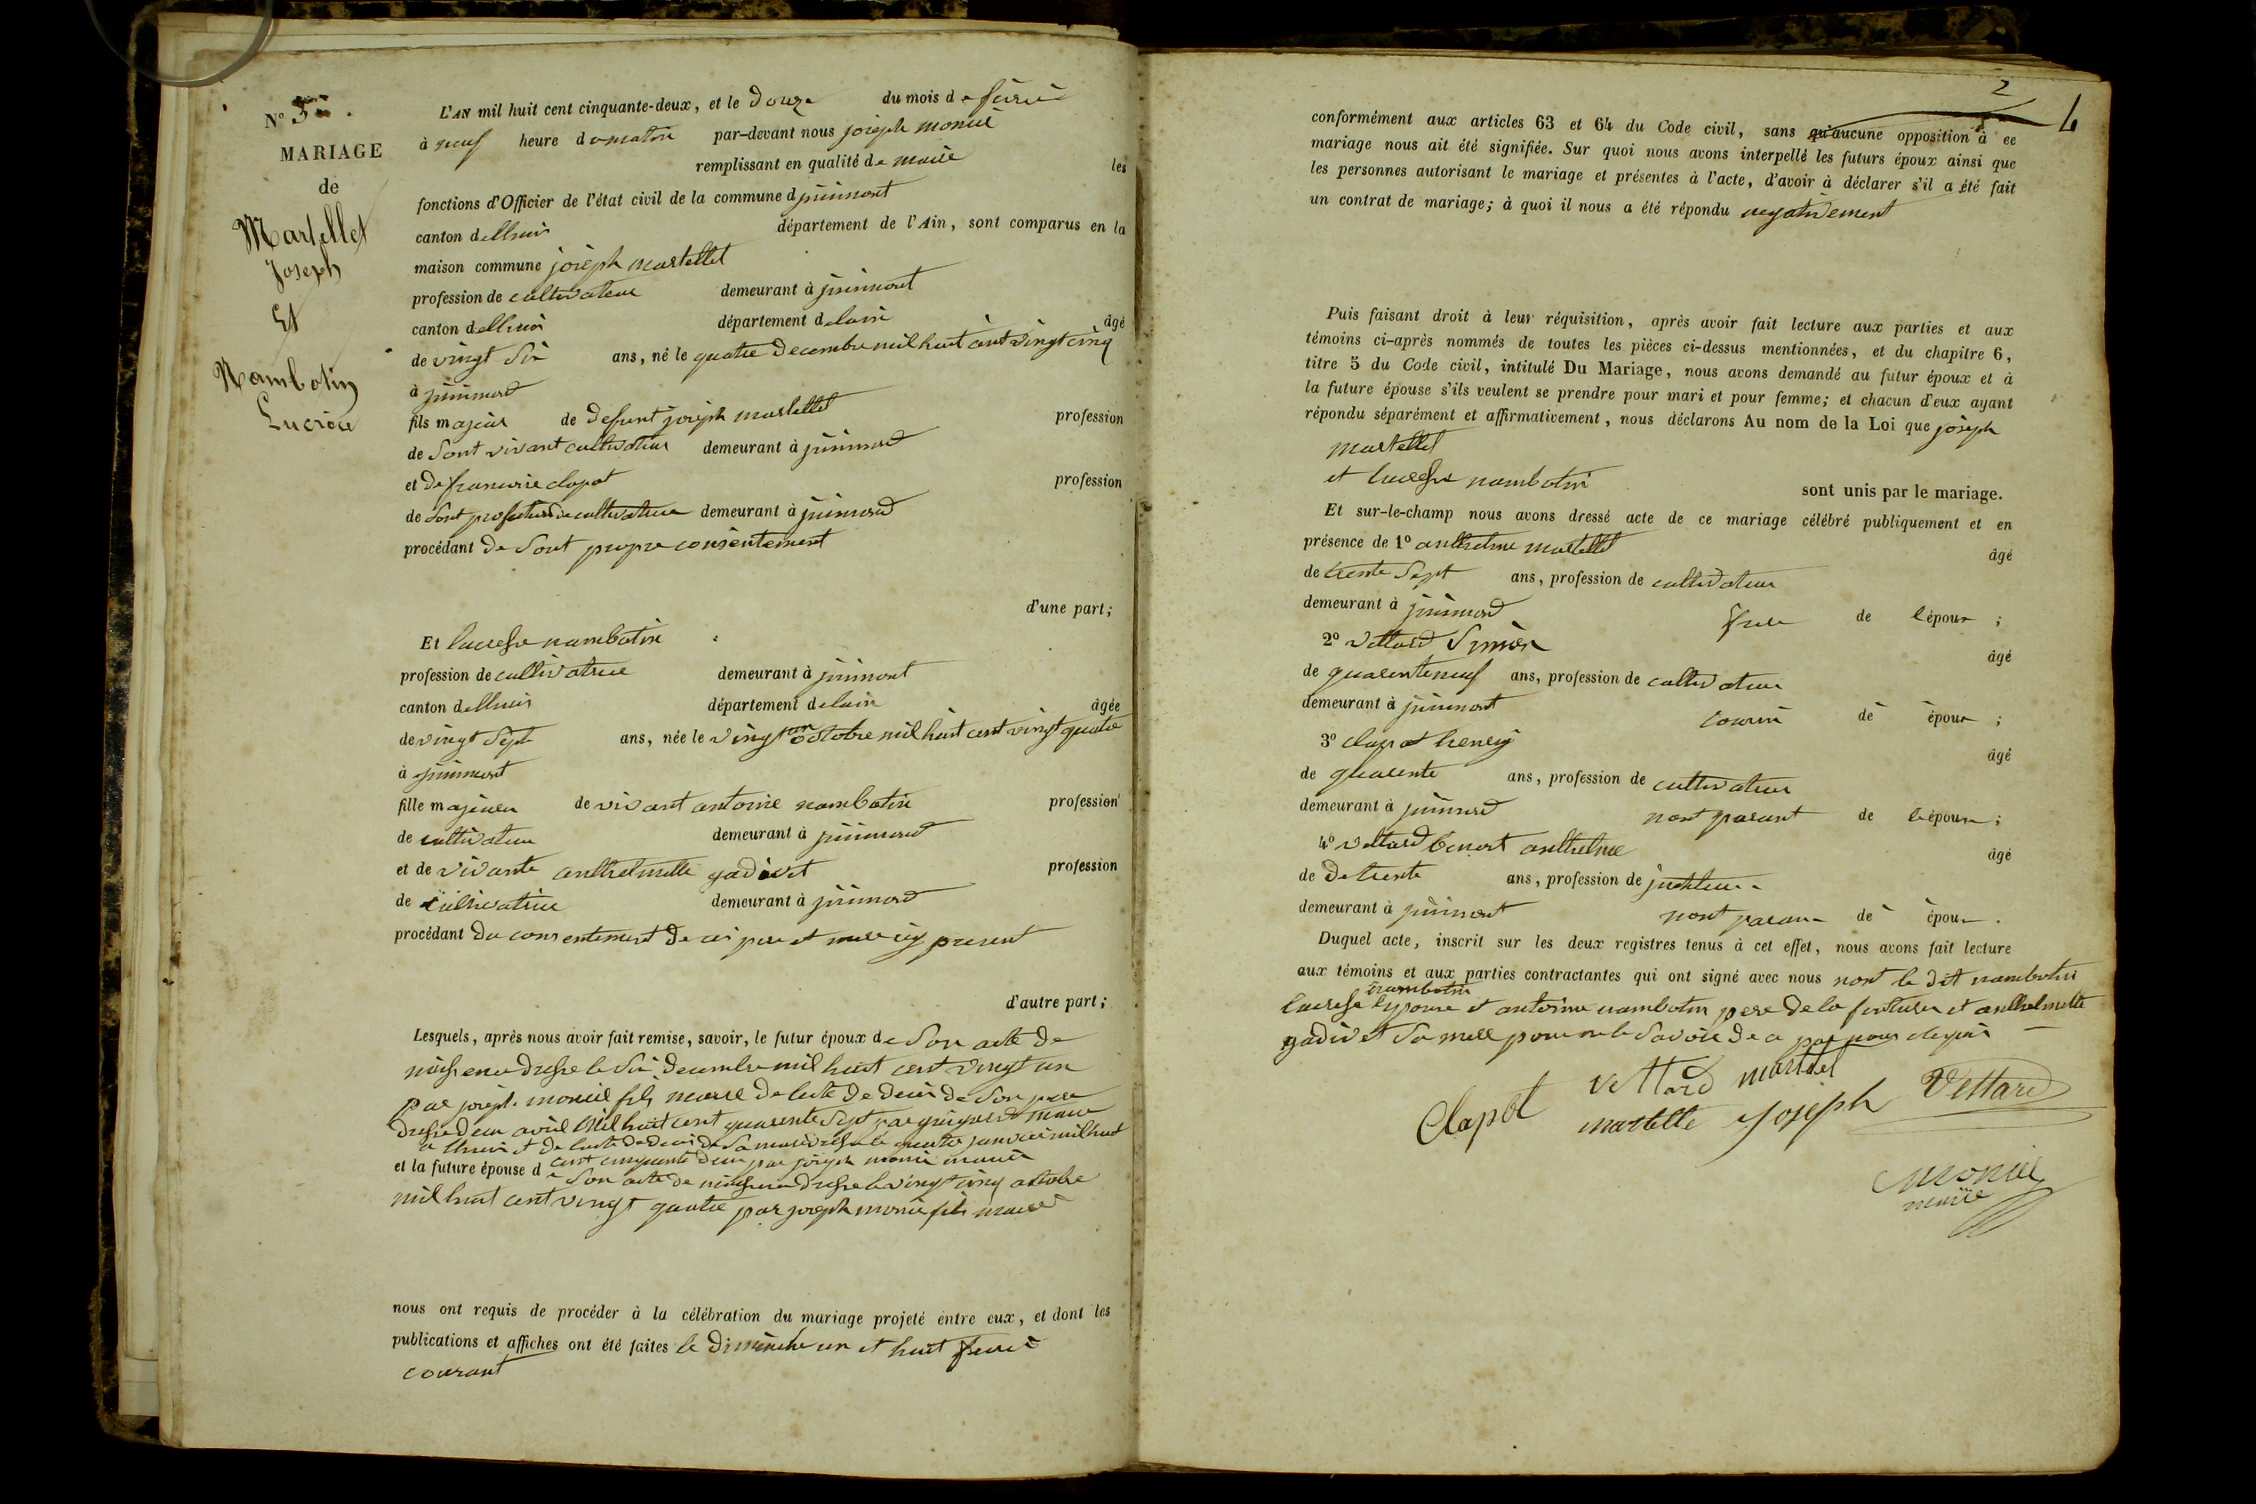 N° 3
MARIAGE
de
Martellet
Joseph
Et
Nambotin
Lucrèce
L'AN mil huit cent cinquante-deux, et le douze du mois de
à neuf heure du matin par-devant nous joseph monié
remplissant en qualité de maire les
fonctions d'Officier de l'état civil de la commune d prémont
canton d département de l'Ain, sont comparus en la
maison commune joseph martellet
profession de cultivateur demeurant à
canton d département de lain âgé
de vingt Six ans, né le quatre decembre mil huit cent vingt cinq
à
fils majeur de defunt joseph martellet profession
de Sont vivant cultivateur demeurant à
et de francoise clapot profession
de Sont cultivateur demeurant à
procédant de Sont propre consentement
d'une part;
Et lucresse nambotin
profession de cultivatrice demeurant à
canton d département de lain âgée
de vingt Sept ans, née le vingt un octobre mil huit cent vingt quatre
à
fille majeure de vivant antoine nambotin profession
de cultivateur demeurant à
et de vivante anthelmette gadivet profession
de cultivatrice demeurant à
procédant du consentement de ces pere et mere icy present
d'autre part;
Lesquels, après nous avoir fait remise, savoir, le futur époux de Son acte de
naissence dresse le Six decembre mil huit cent vingt un
par joseph monié fils maire de lacte de deces de Son pere
dresse deux avril Mil huit cent quarente Sept par maire
a et de lacte de deces de Sa mere dresse le quatre janvier mil huit
cent cinquente deux par joseph monié maire
et la future épouse d e Son acte de naissence dresse le vingt cinq octobre
mil huit cent vingt quatre par joseph monié fils maire
nous ont requis de procéder à la célébration du mariage projeté entre eux, et dont les
publications et affiches ont été faites le Dimenche un et huit
courant
2
4
conformément aux articles 63 et 64 du Code civil, sans qu'aucune opposition à ce
mariage nous ait été signifiée. Sur quoi nous avons interpellé les futurs époux ainsi que
les personnes autorisant le mariage et présentes à l'acte, d'avoir à déclarer s'il a été fait
un contrat de mariage; à quoi il nous a été répondu negativement
Puis faisant droit à leur réquisition, après avoir fait lecture aux parties et aux
témoins ci-après nommés de toutes les pièces ci-dessus mentionnées, et du chapitre 6,
titre 5 du Code civil, intitulé Du Mariage, nous avons demandé au futur époux et à
la future épouse s'ils veulent se prendre pour mari et pour femme; et chacun d'eux ayant
répondu séparément et affirmativement, nous déclarons Au nom de la Loi que joseph
martellet
et lucresse nambotin sont unis par le mariage.
Et sur-le-champ nous avons dressé acte de ce mariage célébré publiquement et en
présence de 1° anthelme martellet âgé
de trente Sept ans, profession de cultivateur
demeurant à frere de lépoux ;
2° vettard Simon âgé
de quarente neuf ans, profession de cultivateur
demeurant à cousin de époux ;
3° clapot henry âgé
de quarente ans, profession de cultivateur
demeurant à nont parant de lépoux ;
4° vettard benoit anthelme âgé
de de trente ans, profession de
demeurant à nont parant de époux .
Duquel acte, inscrit sur les deux registres tenus à cet effet, nous avons fait lecture
aux témoins et aux parties contractantes qui ont signé avec nous nont le dit nambotin
nambotin
lucresse lepouse et antoine nambotin pere de la future et anthelmette
gadivet Sa mere pour ne le Savoir de ce
Clapot vettard martel Vettard
martelle Joseph
Monié
maire